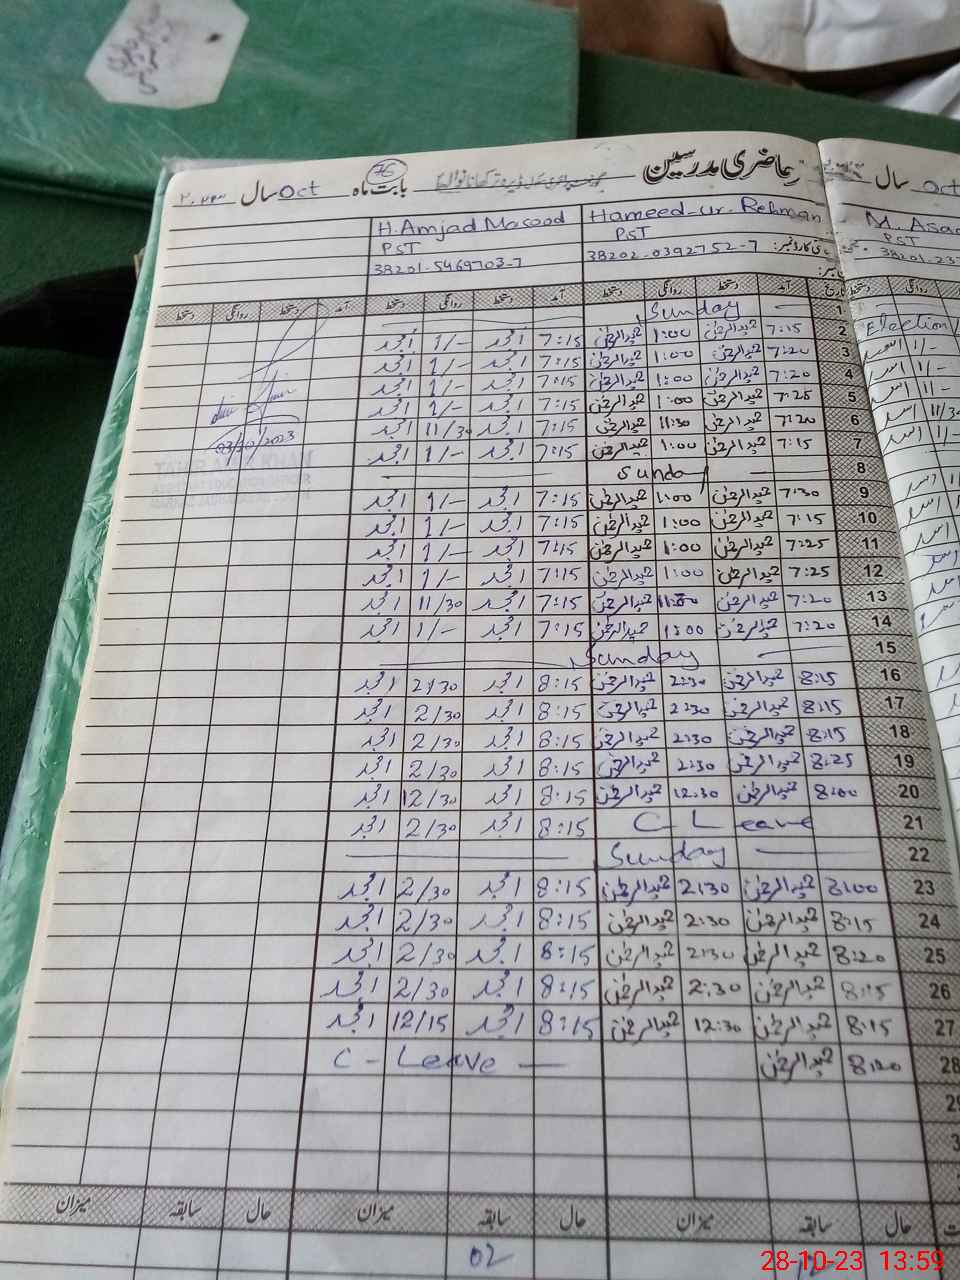 رجسٹر حاضری مدرسین
بابت ماہ Oct سال
76
سال Oct
Hameed-ur-Rehman
H. Amjad Masood
M. Asad
PST
PST
PST
38202-0392752-7
38201-5469703-7
38201-237
تاریخ آمد دستخط روانگی دستخط آمد دستخط روانگی دستخط آمد دستخط روانگی دستخط
1 Sunday
2 7:15 حمیدالرحمٰن 1:00 حمیدالرحمٰن 7:15 امجد 1/- امجد Election
3 7:20 حمیدالرحمٰن 1:00 حمیدالرحمٰن 7:15 امجد 1/- امجد
4 7:20 حمیدالرحمٰن 1:00 حمیدالرحمٰن 7:15 امجد 1/- امجد
5 7:25 حمیدالرحمٰن 1:00 حمیدالرحمٰن 7:15 امجد 1/- امجد
6 7:20 حمیدالرحمٰن 11:30 حمیدالرحمٰن 7:15 امجد 11/30 امجد
7 7:15 حمیدالرحمٰن 1:00 حمیدالرحمٰن 7:15 امجد 1/- امجد
03/10/2023
8 Sunday
9 7:30 حمیدالرحمٰن 1:00 حمیدالرحمٰن 7:15 امجد 1/- امجد
10 7:15 حمیدالرحمٰن 1:00 حمیدالرحمٰن 7:15 امجد 1/- امجد
11 7:25 حمیدالرحمٰن 1:00 حمیدالرحمٰن 7:15 امجد 1/- امجد
12 7:25 حمیدالرحمٰن 1:00 حمیدالرحمٰن 7:15 امجد 1/- امجد
13 7:20 حمیدالرحمٰن حمیدالرحمٰن 7:15 امجد 11/30 امجد
14 7:20 حمیدالرحمٰن 1:00 حمیدالرحمٰن 7:15 امجد 1/- امجد
15 Sunday
16 8:15 حمیدالرحمٰن 2:30 حمیدالرحمٰن 8:15 امجد 2/30 امجد
17 8:15 حمیدالرحمٰن 2:30 حمیدالرحمٰن 8:15 امجد 2/30 امجد
18 8:15 حمیدالرحمٰن 2:30 حمیدالرحمٰن 8:15 امجد 2/30 امجد
19 8:25 حمیدالرحمٰن 2:30 حمیدالرحمٰن 8:15 امجد 2/30 امجد
20 8:00 حمیدالرحمٰن 12:30 حمیدالرحمٰن 8:15 امجد 12/30 امجد
21 C-Leave 8:15 امجد 2/30 امجد
22 Sunday
23 8:00 حمیدالرحمٰن 2:30 حمیدالرحمٰن 8:15 امجد 2/30 امجد
24 8:15 حمیدالرحمٰن 2:30 حمیدالرحمٰن 8:15 امجد 2/30 امجد
25 8:20 حمیدالرحمٰن 2:30 حمیدالرحمٰن 8:15 امجد 2/30 امجد
26 8:15 حمیدالرحمٰن 2:30 حمیدالرحمٰن 8:15 امجد 2/30 امجد
27 8:15 حمیدالرحمٰن 12:30 حمیدالرحمٰن 8:15 امجد 12/15 امجد
28 8:20 حمیدالرحمٰن C-Leave
29
حال سابقہ میزان حال سابقہ میزان حال سابقہ میزان
02
28-10-23 13:59